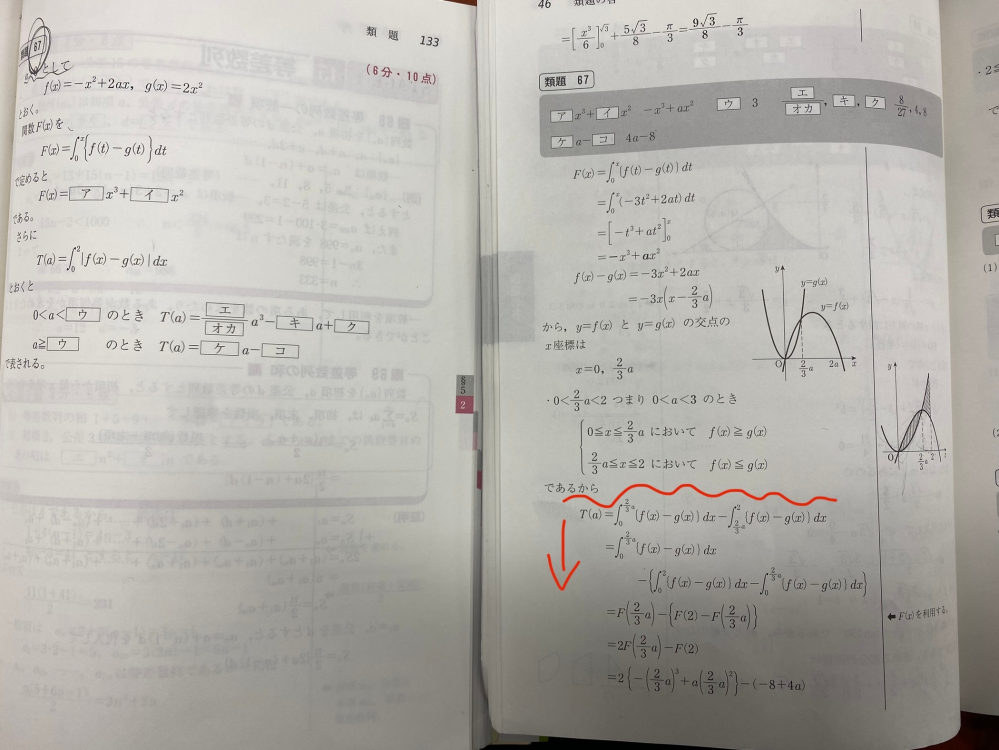 類 題 133
(6分・10点)
87
として
f(x)=-x²+2ax, g(x)=2x²
とおく。
関数F(x)を
F(x)=∫₀ˣ{f(t)-g(t)}dt
で定めると
F(x)=ア x³+イ x²
である。
さらに
T(a)=∫₀²|f(x)-g(x)|dx
とおくと
0<a<ウ のとき T(a)=エ/オカ a³-キ a+ク
a≧ウ のとき T(a)=ケ a-コ
で表される。
§5
2
46 類題の答
=[x³/6]₀^√3+5√3/8-π/3=9√3/8-π/3
類題 67
ア x³+イ x² -x³+ax² ウ 3 エ/オカ, キ, ク 8/27, 4, 8
ケ a-コ 4a-8
F(x)=∫₀ˣ{f(t)-g(t)}dt
=∫₀ˣ(-3t²+2at)dt
=[-t³+at²]₀ˣ
=-x³+ax²
f(x)-g(x)=-3x²+2ax
=-3x(x-2/3 a)
から, y=f(x) と y=g(x) の交点の
x座標は
x=0, 2/3 a
y
y=g(x)
y=f(x)
O 2/3 a 2a x
・0<2/3 a<2 つまり 0<a<3 のとき
0≦x≦2/3 a において f(x)≧g(x)
2/3 a≦x≦2 において f(x)≦g(x)
であるから
y
O 2/3 a 2 x
T(a)=∫₀^(2/3 a){f(x)-g(x)}dx-∫_(2/3 a)²{f(x)-g(x)}dx
=∫₀^(2/3 a){f(x)-g(x)}dx
-{∫₀²{f(x)-g(x)}dx-∫₀^(2/3 a){f(x)-g(x)}dx}
=F(2/3 a)-{F(2)-F(2/3 a)}
⬅ F(x)を利用する。
=2F(2/3 a)-F(2)
=2{-(2/3 a)³+a(2/3 a)²}-(-8+4a)
類
(1)